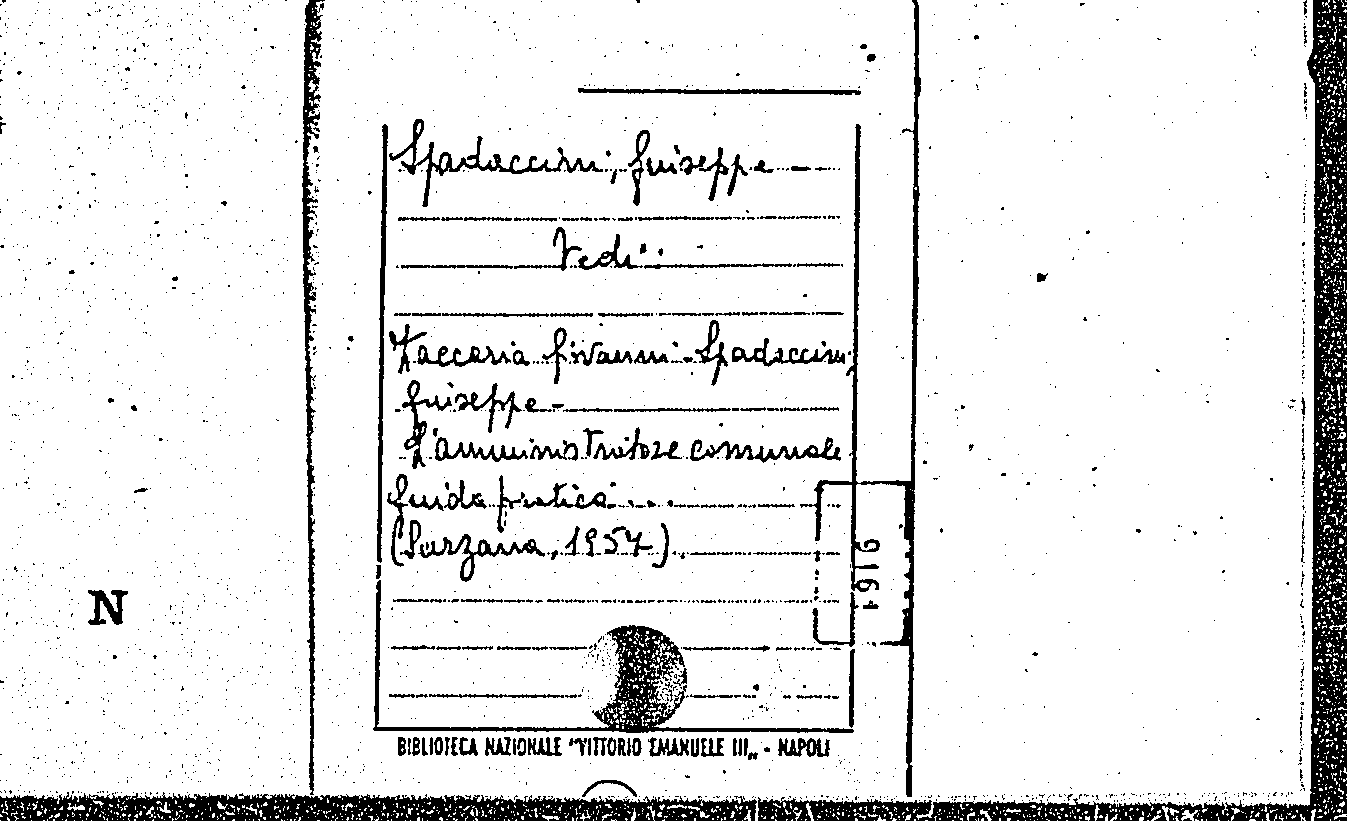 Spadaccini, Giuseppe -
Vedi:
Zaccaria Giovanni - Spadaccini,
Giuseppe -
L'amministratore comunale
Guida pratica ...
(Sarzana, 1957).
1916
N
BIBLIOTECA NAZIONALE "VITTORIO EMANUELE III„ - NAPOLI